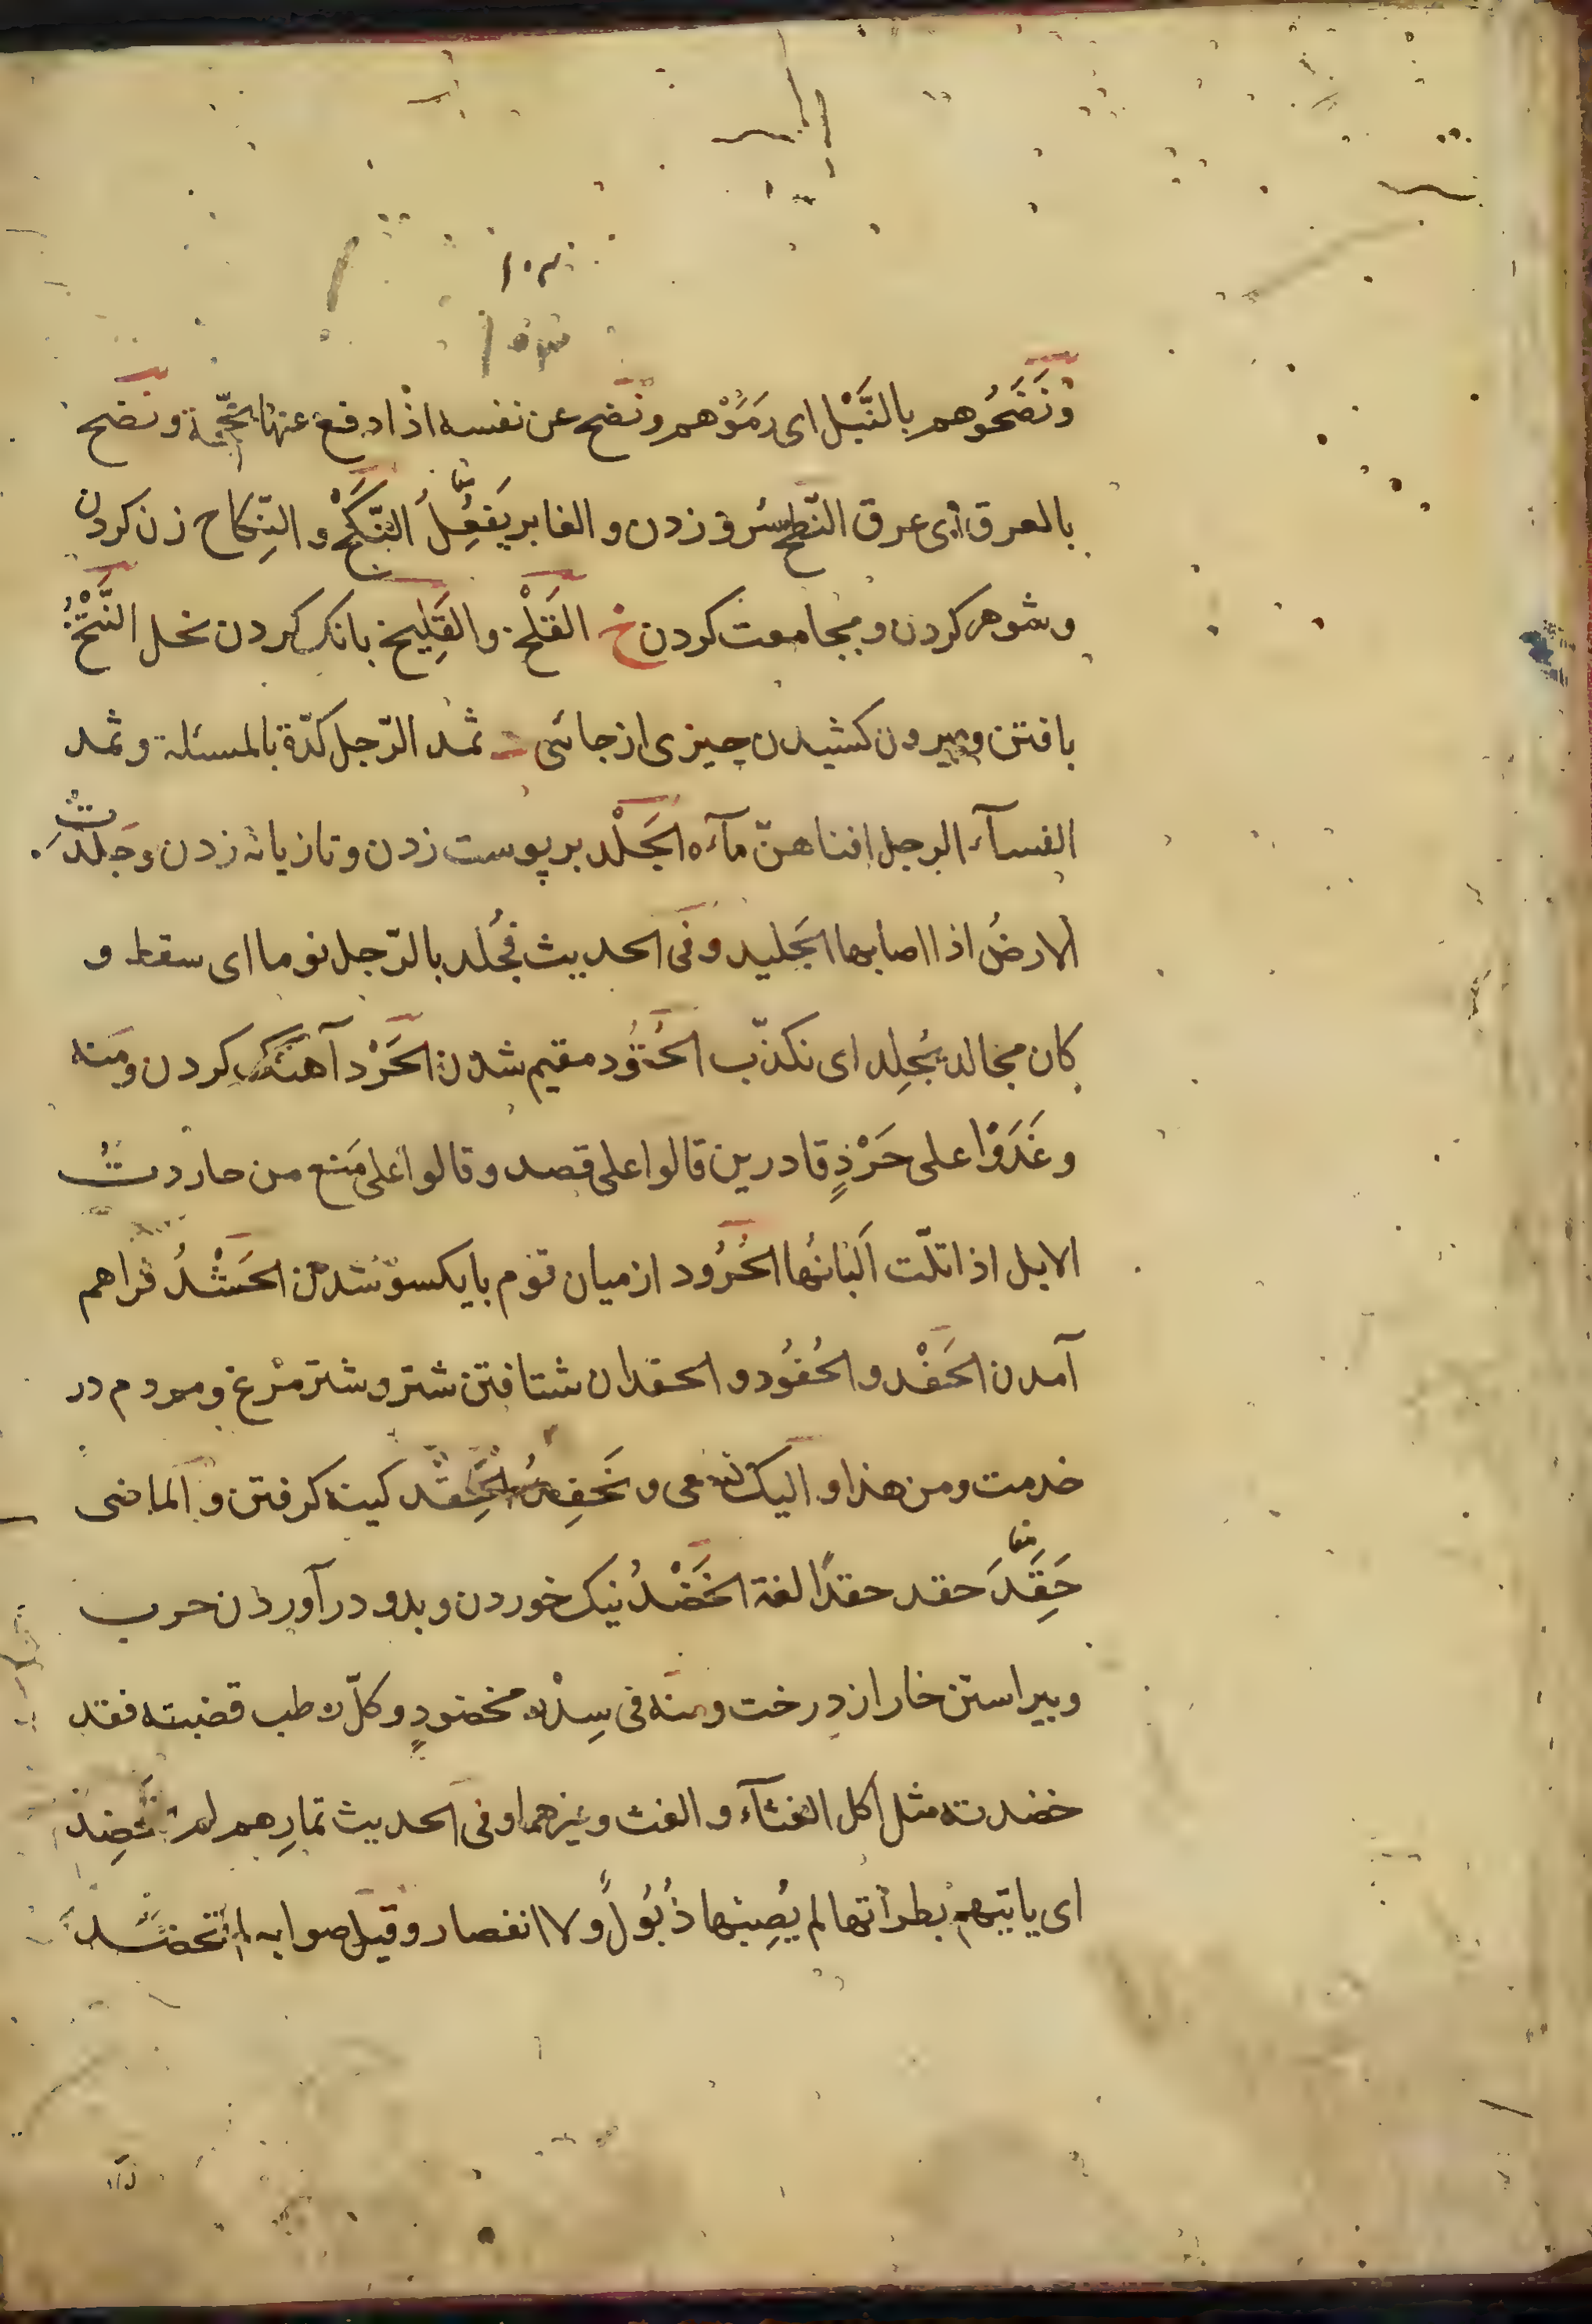 ۱۰۳
۱۰۳
وَنَضَحُوهم بالنَّبْل ای رَمَوْهم ونضح عن نفسه اذا دفع عنها بحجّة ونضح
بالعرق ای عرق النّطح سرو زدن والغابر یَفعِلُ النّکح والنِّکاح زن کردن
وشوهر کردن ومجامعت کردن خ القَلْخ والقَلِیخ بانک کردن نحل النَّتْخُ
بافتن وبیرون کشیدن چیزی از جائی د ثمد الرّجل کدّة بالمسئلة وثمد
النسآء الرجل افناهنّ مآءه الجَلْد بر پوست زدن وتازیانه زدن وجلدت
الارضُ اذا اصابها الجَلید وفی الحدیث فجُلد بالرّجل نوما ای سقط و
کان مجالد یُجلِد ای نکذّب الحُتُود مقیم شدن الحَرْد آهنک کردن ومنه
وغَدَوْا علی حَرْدٍ قادرین قالوا علی قصد وقالوا علی مَنع من حاردت
الابل اذا قلّت اَلبانُها الحُرُود از میان قوم بایکسو شدن الحَشْدُ فراهم
آمدن الحَفْد والحُفُود والحفدان شتافتن شتر وشتر مرْغ ومردم در
خدمت ومن هذا والیک نسعی ونحَفِدُ الحِقْد کینه کرفتن والماضی
حَقِدَ حقد حقدًا لغة الخَضْدُ نیک خوردن وبدو درآوردن حرب
وبیراستن خار از درخت ومنه فی سِدْرٍ مخضودٍ وکلّ رطب قضبته فقد
خضدته مثل اکل القثآء والقت وغیرهما وفی الحدیث ثمارهم لم تخضِد
ای یاتیهم بطرأتها لم یُصِبْها ذُبُولٌ ولا انعصار وقیل صوابه لم تخضد